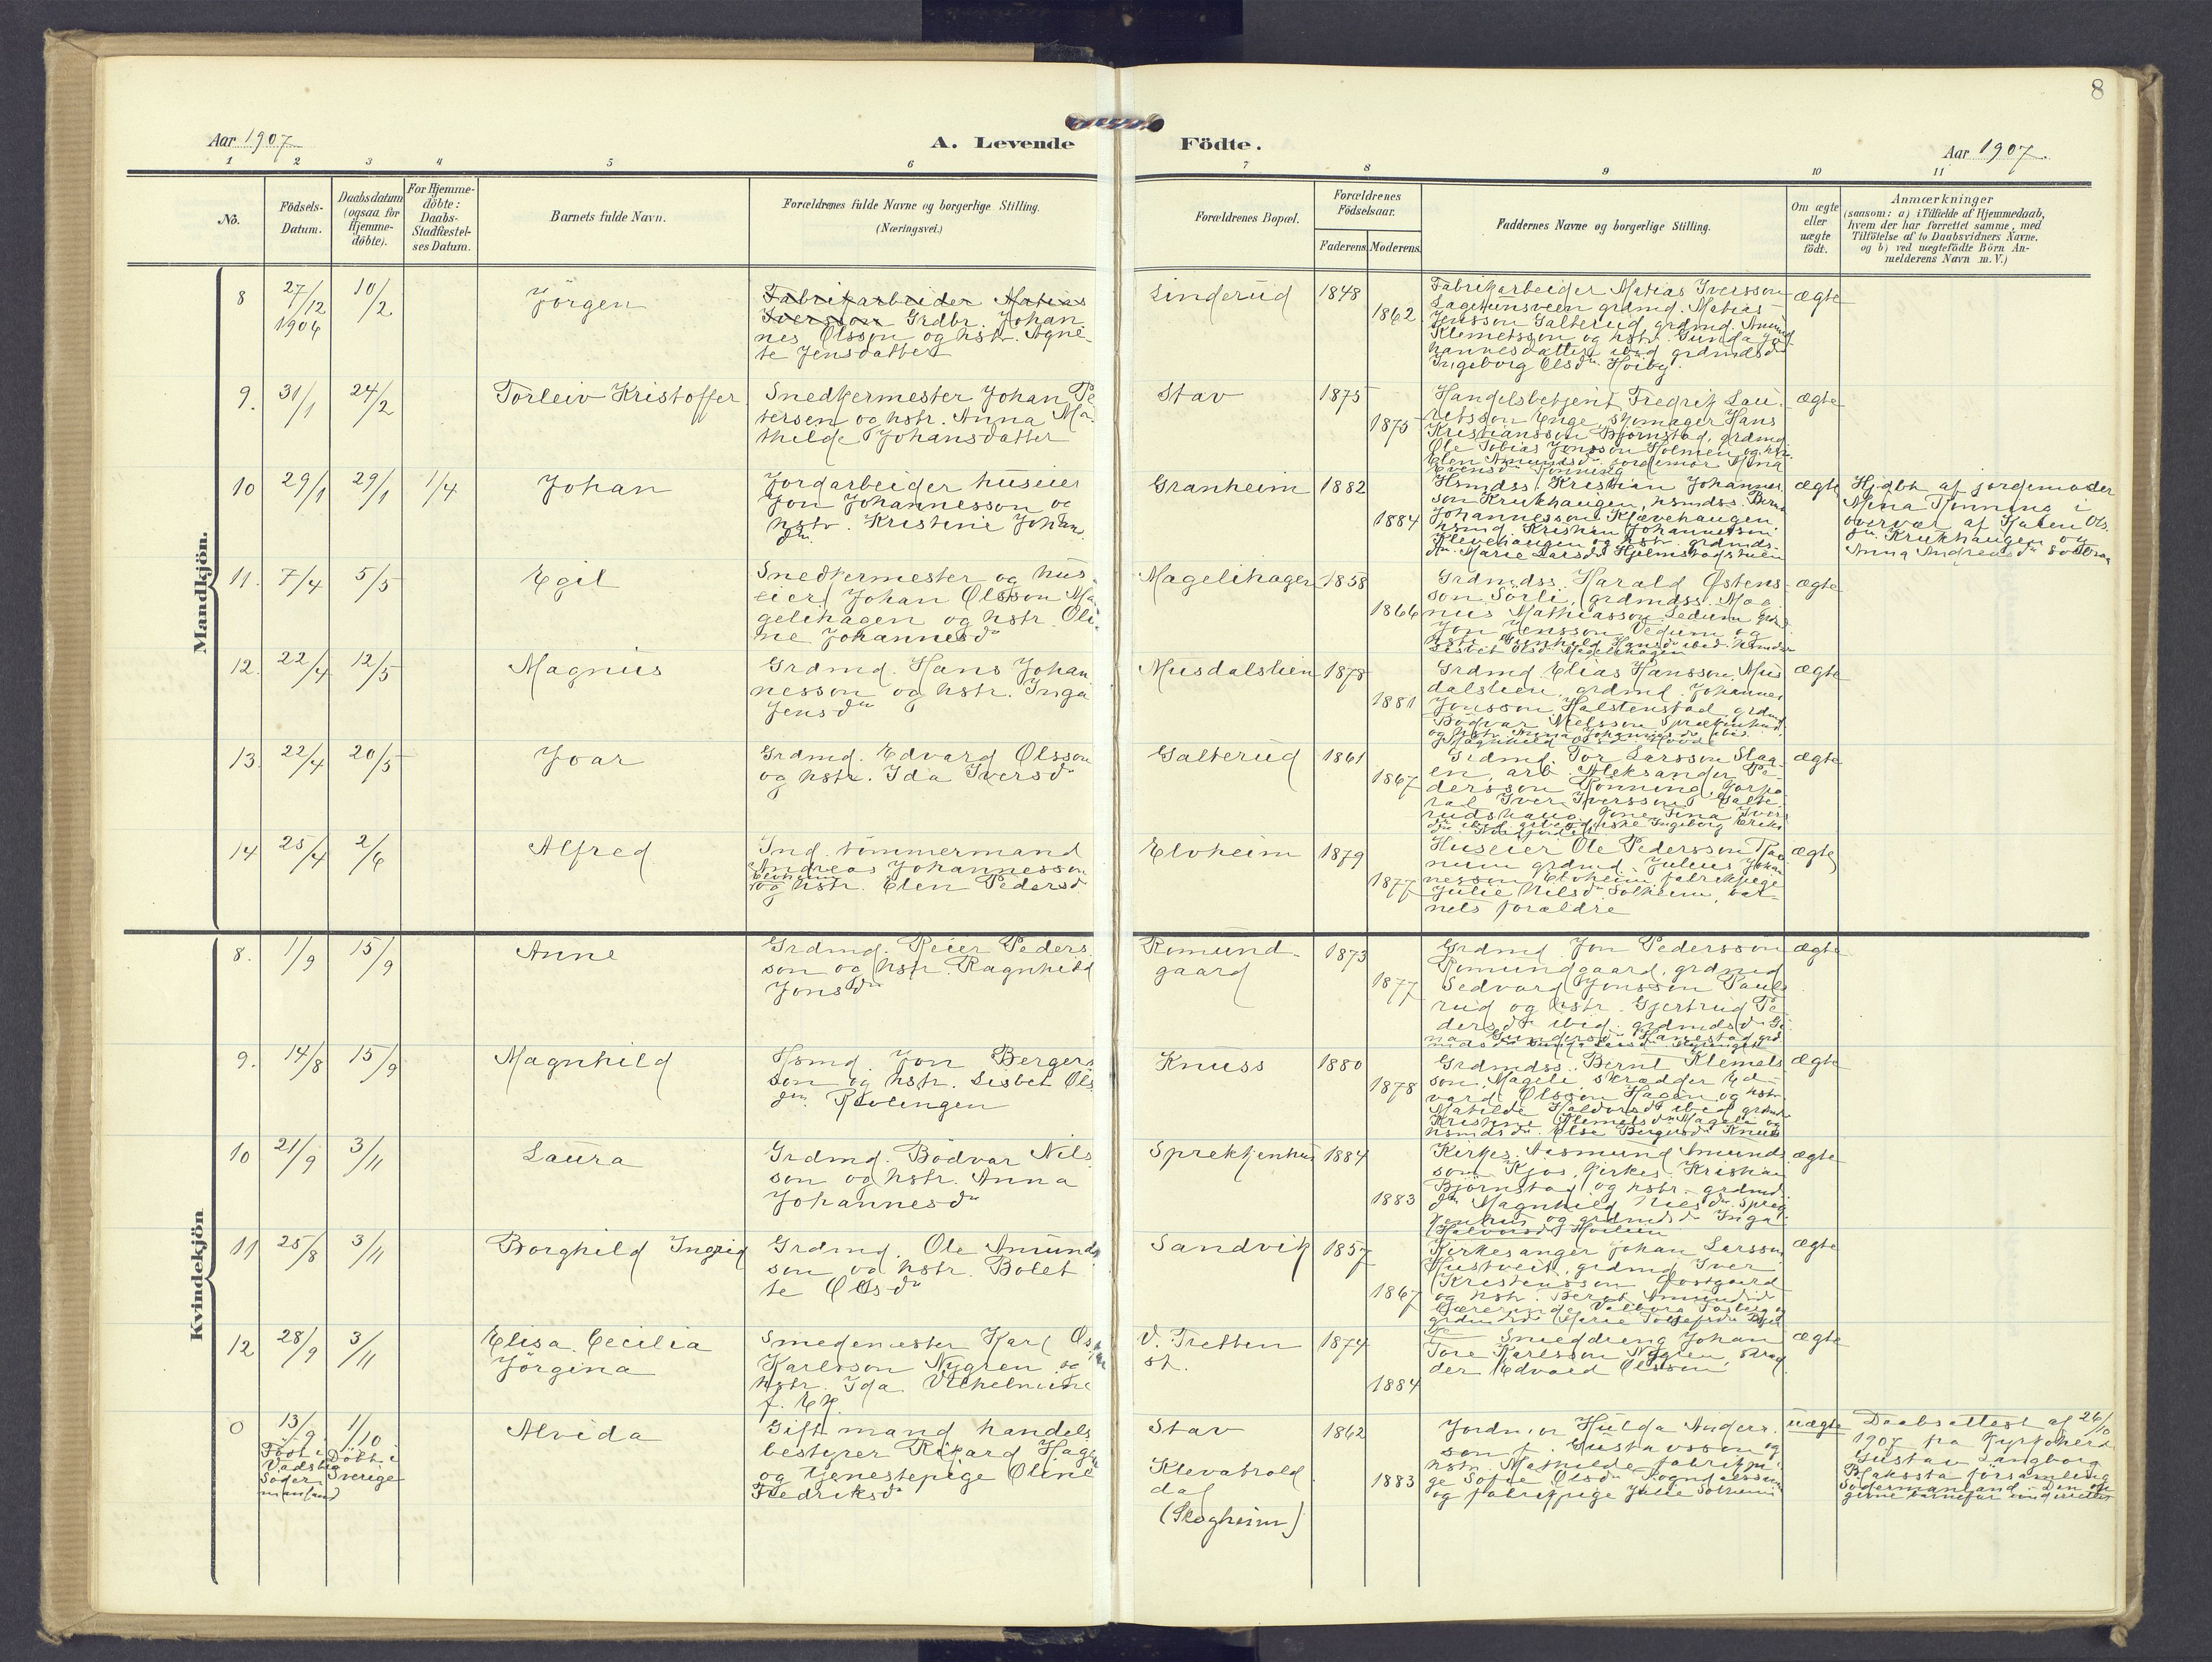 8
Aar 1907
A. Levende Födte.
Aar 1907.
1 2 3 4 5 6 7 8 9 10 11
No.
Födsels-
Datum.
Daabsdatum
(ogsaa for
Hjemme-
döbte).
For Hjemme-
döbte:
Daabs-
Stadfæstel-
ses Datum.
Barnets fulde Navn.
Forældrenes fulde Navne og borgerlige Stilling.
(Næringsvei.)
Forældrenes Bopæl.
Forældrenes
Födselsaar.
Faderens Moderens
Faddernes Navne og borgerlige Stilling.
Om ægte
eller
uægte
födt.
Anmærkninger
(saasom: a) i Tilfælde af Hjemmedaab,
hvem der har forrettet samme, med
Tilföielse af to Daabsvidners Navne,
og b) ved uægtefödte Börn An-
melderens Navn m. V.)
Mandkjön.
8
27/12
1906
10/2
Jörgen
Fabrikarbeider Matias
Iversson Grdbr. Johan
nes Olsson og hstr. Agne-
te Jensdatter
Linderud
1848
1862
Fabrikarbeider Matias Iversson
grdmd. Matias
Jensson Galterud grdmd. Amund
Klemetsson og hstr. Gunda Jo
hannesdatter ibid grdmdsdr
Ingeborg Olsdr Hoiby.
ægte
9.
31/1
24/2
Torleiv Kristoffer
Snedkermester Johan Pe
tersen og hstr. Anna Ma
thilde Johansdatter
Stav
1875
1875
Handelsbetjent Fredrik Lau
ritsson Enge, skomager Hans
Kristiansson Björnstad, grdmd
Ole Tobias Jonsson Holmen og hstr
Elen Amundsdr jordemor Mina
Evensdr Rönning
ægte
10
29/1
29/1
1/4
Johan
Jordarbeider huseier
Jon Johannesson og
hstr. Kristine Johans
dr.
Granheim
1882
1884
Hsmdss. Kristian Johannes
son Krukhaugen, hsmdss. Bernt
Johannesson Klævehaugen,
hsmd Kristian Johannesson
Klevehaugen og hstr. grdmds
dr. Marie Larsdr Hjelmstadstuen
ægte
Hjdbt af jordemoder
Mina Rönning i
overvær af Karen Ols
dr. Krukhaugen og
Anna Andreasdr
11.
7/4
5/5
Egil
Snedkermester og hus
eier Johan Olsson Ma
gelihagen og hstr. Oli
ne Johannesdr
Magelihagen
1858
1866
Grdmdss. Harald Østens
son Sörli, grdmdss. Mag
nus Mathiasson Ledum grd
Jon Jensson Vedum og
hstr. Gunhild Hansdr ibid. hsmdsdr
Lisbet Olsdr Magelihagen
ægte
12.
22/4
12/5
Magnus
Grdmd. Hans Johan
nesson og hstr. Inga
Jensdr
Musdalslien
1878
1881
Grdmd Elias Hansson Mus
dalslien, grdmd. Johannes
Jonsson Halstenstad, grdmd
Bödvar Nielsson Sprækenhus,
og hstr. Anna Johannesdr ibid.
Magnhild Olsdr
ægte
13.
22/4
20/5
Joar
Grdmd. Edvard Olsson
og hstr. Ida Iversdr
Galterud
1861
1867
Grdmd. Tor Larsson Slaa
en, arb. Aleksander Pe
dersson Rönning, Korpo
ral Iver Iversson Galte
rudshaug, Kone Tina Ivers
dr ibid. Ingeborg Eriks
ægte
14
25/4
2/6
Alfred
Ind. tömmermand
Andreas Johannesson
Elvheim
og hstr. Elen Pedersdr
Elvheim
1879
1877
Huseier Ole Pedersson
grdmd. Julius Johan
nesson Elvheim fabrikpige
Julie Nilsdr Solheim, bar-
nets forældre
ægte
Kvindekjön
8.
1/9
15/9
Anne
Grdmd. Reier Peders
son og hstr. Ragnhild
Jonsdr
Romund-
gaard
1873
1877
Grdmd. Jon Pedersson
Romundgaard, grdmd
Sedvard Jonsson Pauls
rud og hstr. Gjertrud Pe
dersdr ibid. grdmdsdr Gi
na Gundersdr
ægte
9.
14/8
15/9
Magnhild
Hsmd. Jon Bergers
son og hstr. Lisbet Ols
dr. Rövlingen
Knuss
1880
1878
Grdmdss. Bernt Klemets
son, Mageli, skrædder Ed-
vard Olsson Hagen og hstr
Matilde Haldorsdr ibid grdmds
Kristine Klemetsdr Mageli og
hsmdsdr Else Bergersdr Knuss
ægte
10
21/9
3/11
Laura
Grdmd. Bödvar Nils
son og hstr. Anna
Johannesdr
Sprekkenhus
1884
1883
Kirkes. Aasmund Amunds
son Kjos, Kirkes. Kristian
Björnstad og hstr. grdmd.
dr. Magnhild Nilsdr Spræk
kenhus og grdmdsdr Inga
Halvorsdr Moilien
ægte
11
25/8
3/11
Borghild Ingrid
Grdmd. Ole Amunds
son og hstr. Bolet
te Olsdr
Sandvik
1857
1867
Kirkesanger Johan Larsson
Hustveit, grdmd Iver
Kristensson Jostgaard
og hstr. Berit Amundsdr
Lærerinde Valborg Fosberg og
grdmdsdr Marie
ægte
12
28/9
3/11
Elisa Cecilia
Jörgina
Smedemester Karl Os
Karlsson Nygren og
hstr. Ida Vilhelmine
f. Ek
V. Tretten
st.
1874
1884
Smeddreng Johan
Tore Karlsson Nygren, skræd
der Edvard Olsson
ægte
0
13/9.
Födt i
Vadsbro
Söder
manland
1/10
Döbt i
Sverige
Alvida
Gift mand handels
bestyrer Rikard Hage
og tjenestepige Oline
Fredriksdr
Stav
Klevabrold
dal
(Skogheim)
1862
1883
Jordmor Hulda Anders
son f. Gustavsson og
hstr. Mathilde fabrikpi
ge Sofie Olsdr
og fabrikpige Julie Solheim
uægte
Daabsattest af 26/10
1907 fra Kyrkoherde
Gustav Långborg
Blakssta församling
Södermanland. Den op
givne barnefar underrettet